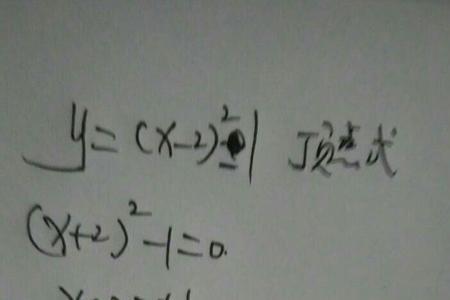 y=(x-2)²-1 顶点式
(x+2)²-1=0.